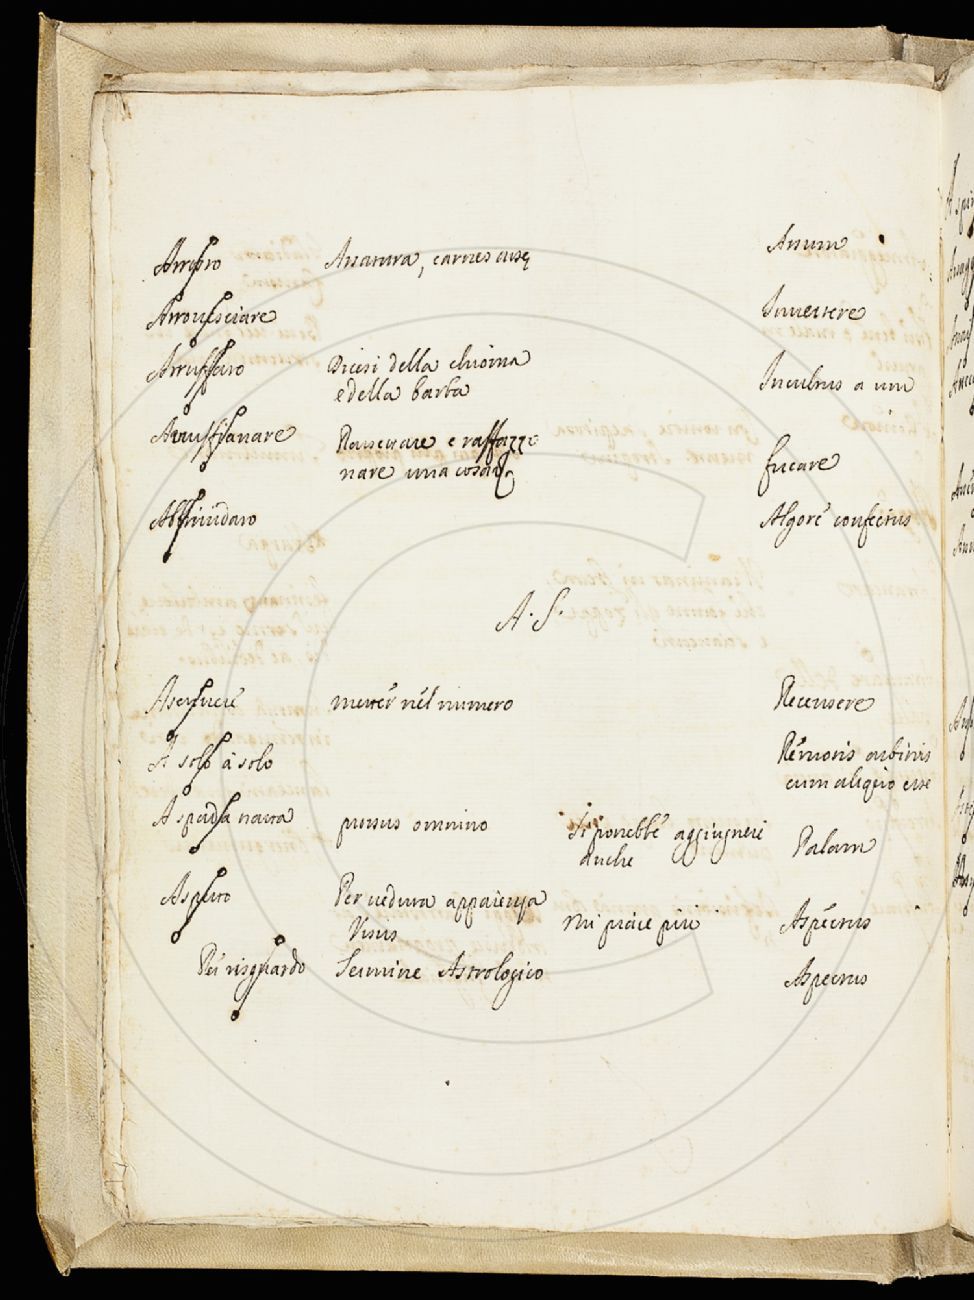 Arrosto Assatura, carnes assę Assum
Arrovesciare Invertere
Arruffato Dicesi della chioma Incultus a um
e della barba
Arruffianare Rassettare e raffazzo
nare una cosa Fucare
Assiderato Algore confectus
A. S.
Ascrivere metter nel numero Recensere
A solo à solo Remotis arbitris
cum aliquo esse
A spada tratta prorsus omnino Si potrebbe aggiugnere Palam
Anche
Aspetto Per veduta apparenza Mi piace piu Aspectus
Visus
Per risguardo Termine Astrologico Aspectus